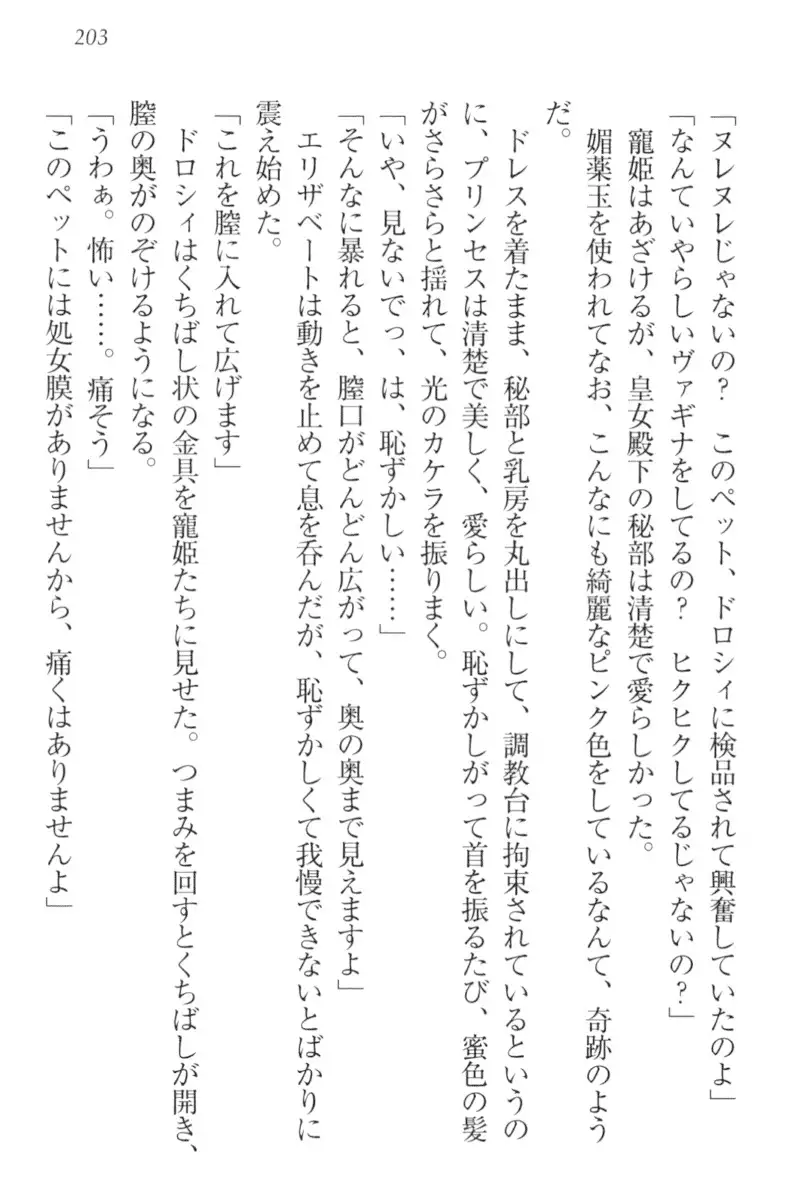 203
「ヌレヌレじゃないの？　このペット、ドロシィに検品されて興奮していたのよ」
「なんていやらしいヴァギナをしてるの？　ヒクヒクしてるじゃないの？」
　寵姫はあざけるが、皇女殿下の秘部は清楚で愛らしかった。
　媚薬玉を使われてなお、こんなにも綺麗なピンク色をしているなんて、奇跡のよう
だ。
　ドレスを着たまま、秘部と乳房を丸出しにして、調教台に拘束されているというの
に、プリンセスは清楚で美しく、愛らしい。恥ずかしがって首を振るたび、蜜色の髪
がさらさらと揺れて、光のカケラを振りまく。
「いや、見ないでっ、は、恥ずかしい……」
「そんなに暴れると、膣口がどんどん広がって、奥の奥まで見えますよ」
　エリザベートは動きを止めて息を呑んだが、恥ずかしくて我慢できないとばかりに
震え始めた。
「これを膣に入れて広げます」
　ドロシィはくちばし状の金具を寵姫たちに見せた。つまみを回すとくちばしが開き、
膣の奥がのぞけるようになる。
「うわぁ。怖い……。痛そう」
「このペットには処女膜がありませんから、痛くはありませんよ」